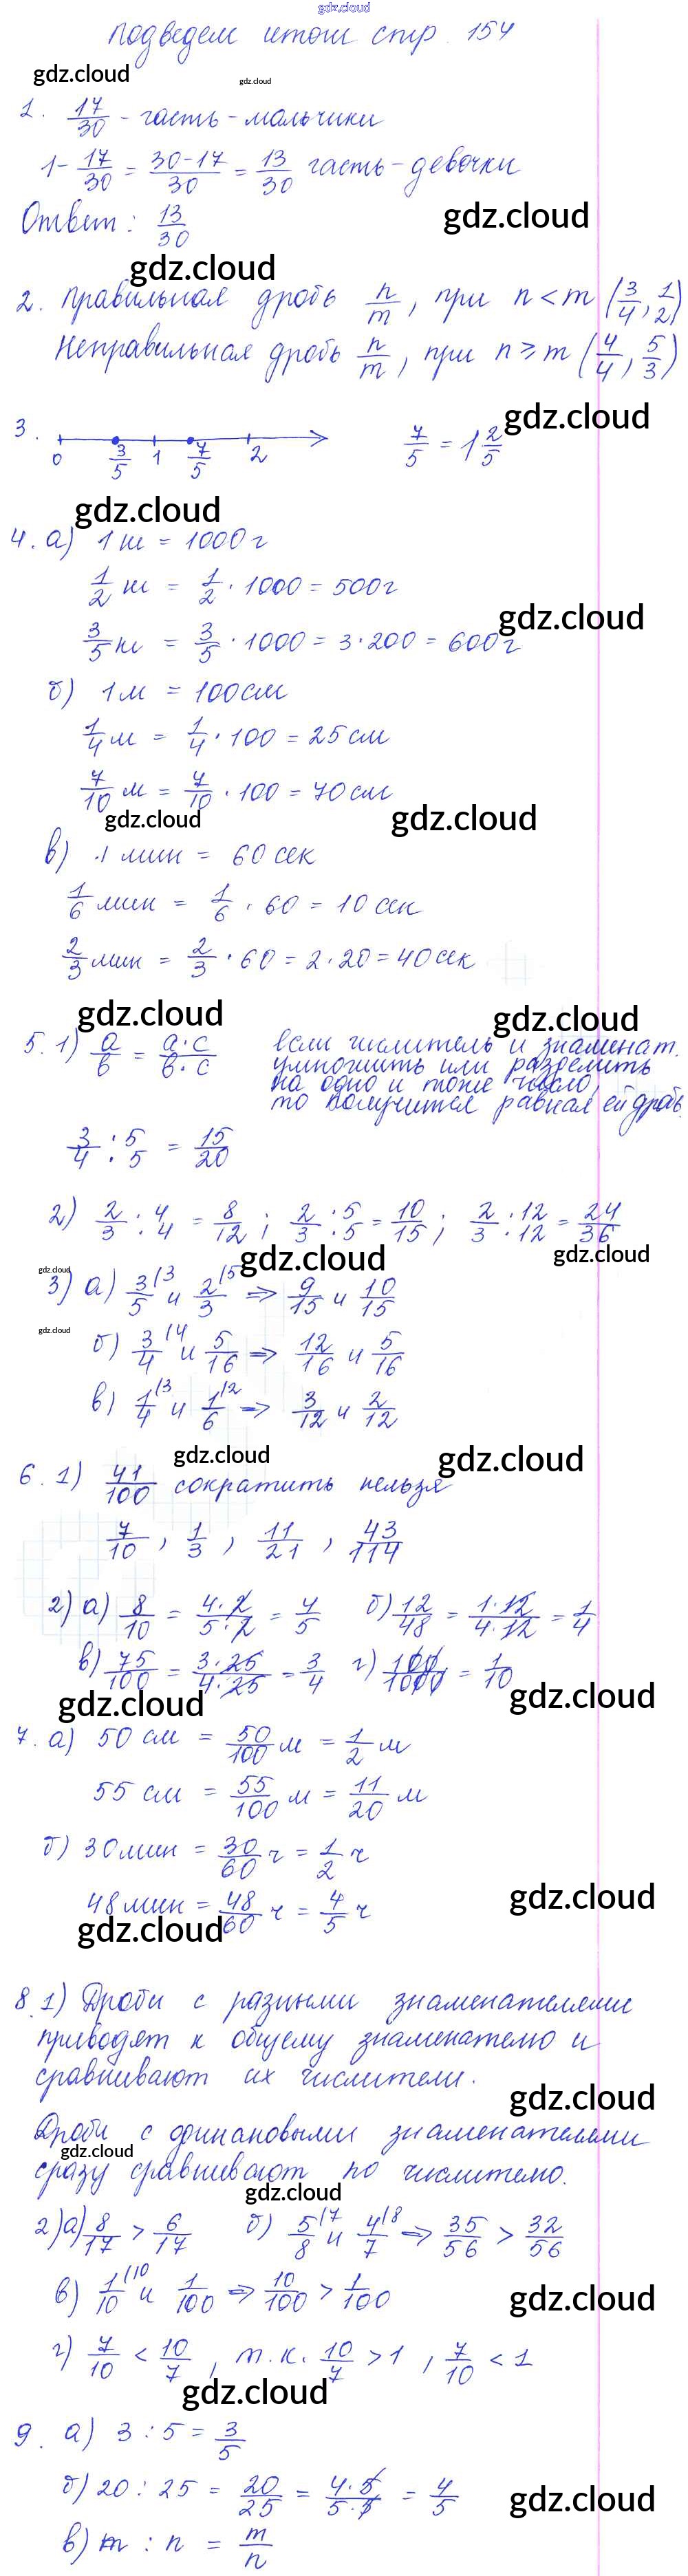 gdz.cloud
подведем итоги стр. 154
gdz.cloud gdz.cloud
1. 17/30 - часть - мальчики
1 - 17/30 = (30-17)/30 = 13/30 часть - девочки
Ответ: 13/30
gdz.cloud
gdz.cloud
2. правильная дробь n/m, при n < m (3/4, 1/2)
Неправильная дробь n/m, при n ⩾ m (4/4, 5/3)
gdz.cloud
3. 0 3/5 1 7/5 2 7/5 = 1 2/5
gdz.cloud
4. а) 1 кг = 1000 г
1/2 кг = 1/2 · 1000 = 500 г
gdz.cloud
3/5 кг = 3/5 · 1000 = 3·200 = 600 г
б) 1 м = 100 см
1/4 м = 1/4 · 100 = 25 см
7/10 м = 7/10 · 100 = 70 см
gdz.cloud gdz.cloud
в) 1 мин = 60 сек
1/6 мин = 1/6 · 60 = 10 сек
2/3 мин = 2/3 · 60 = 2·20 = 40 сек
gdz.cloud gdz.cloud
5. 1) a/в = a·c/в·c если числитель и знаменат.
умножить или разделить
на одно и тоже число,
то получится равная ей дробь.
3/4 : 5/5 = 15/20
2) 2/3 : 4/4 = 8/12 ; 2/3 : 5/5 = 10/15 ; 2/3 : 12/12 = 24/36
gdz.cloud gdz.cloud gdz.cloud
3) а) 3/5 (3 и 2/3 (5 ⇒ 9/15 и 10/15
gdz.cloud
б) 3/4 (4 и 5/16 ⇒ 12/16 и 5/16
в) 1/4 (3 и 1/6 (2 ⇒ 3/12 и 2/12
gdz.cloud gdz.cloud
6. 1) 41/100 сократить нельзя
7/10 , 1/3 , 11/21 , 43/114
2) а) 8/10 = 4·2/5·2 = 4/5 б) 12/48 = 1·12/4·12 = 1/4
в) 75/100 = 3·25/4·25 = 3/4 г) 100/1000 = 1/10
gdz.cloud gdz.cloud
7. а) 50 см = 50/100 м = 1/2 м
55 см = 55/100 м = 11/20 м
б) 30 мин = 30/60 ч = 1/2 ч
48 мин = 48/60 ч = 4/5 ч
gdz.cloud
gdz.cloud
8. 1) Дроби с разными знаменателями
приводят к общему знаменателю и
сравнивают их числители.
gdz.cloud
Дроби с одинаковыми знаменателями
gdz.cloud
сразу сравнивают по числителю.
gdz.cloud
2) а) 8/17 > 6/17 б) 5/8 (7 и 4/7 (8 ⇒ 35/56 > 32/56
в) 1/10 (10 и 1/100 ⇒ 10/100 > 1/100
gdz.cloud
г) 7/10 < 10/7 , т.к. 10/7 > 1 , 7/10 < 1
gdz.cloud
9. а) 3 : 5 = 3/5
б) 20 : 25 = 20/25 = 4·5/5·5 = 4/5
gdz.cloud
в) m : n = m/n